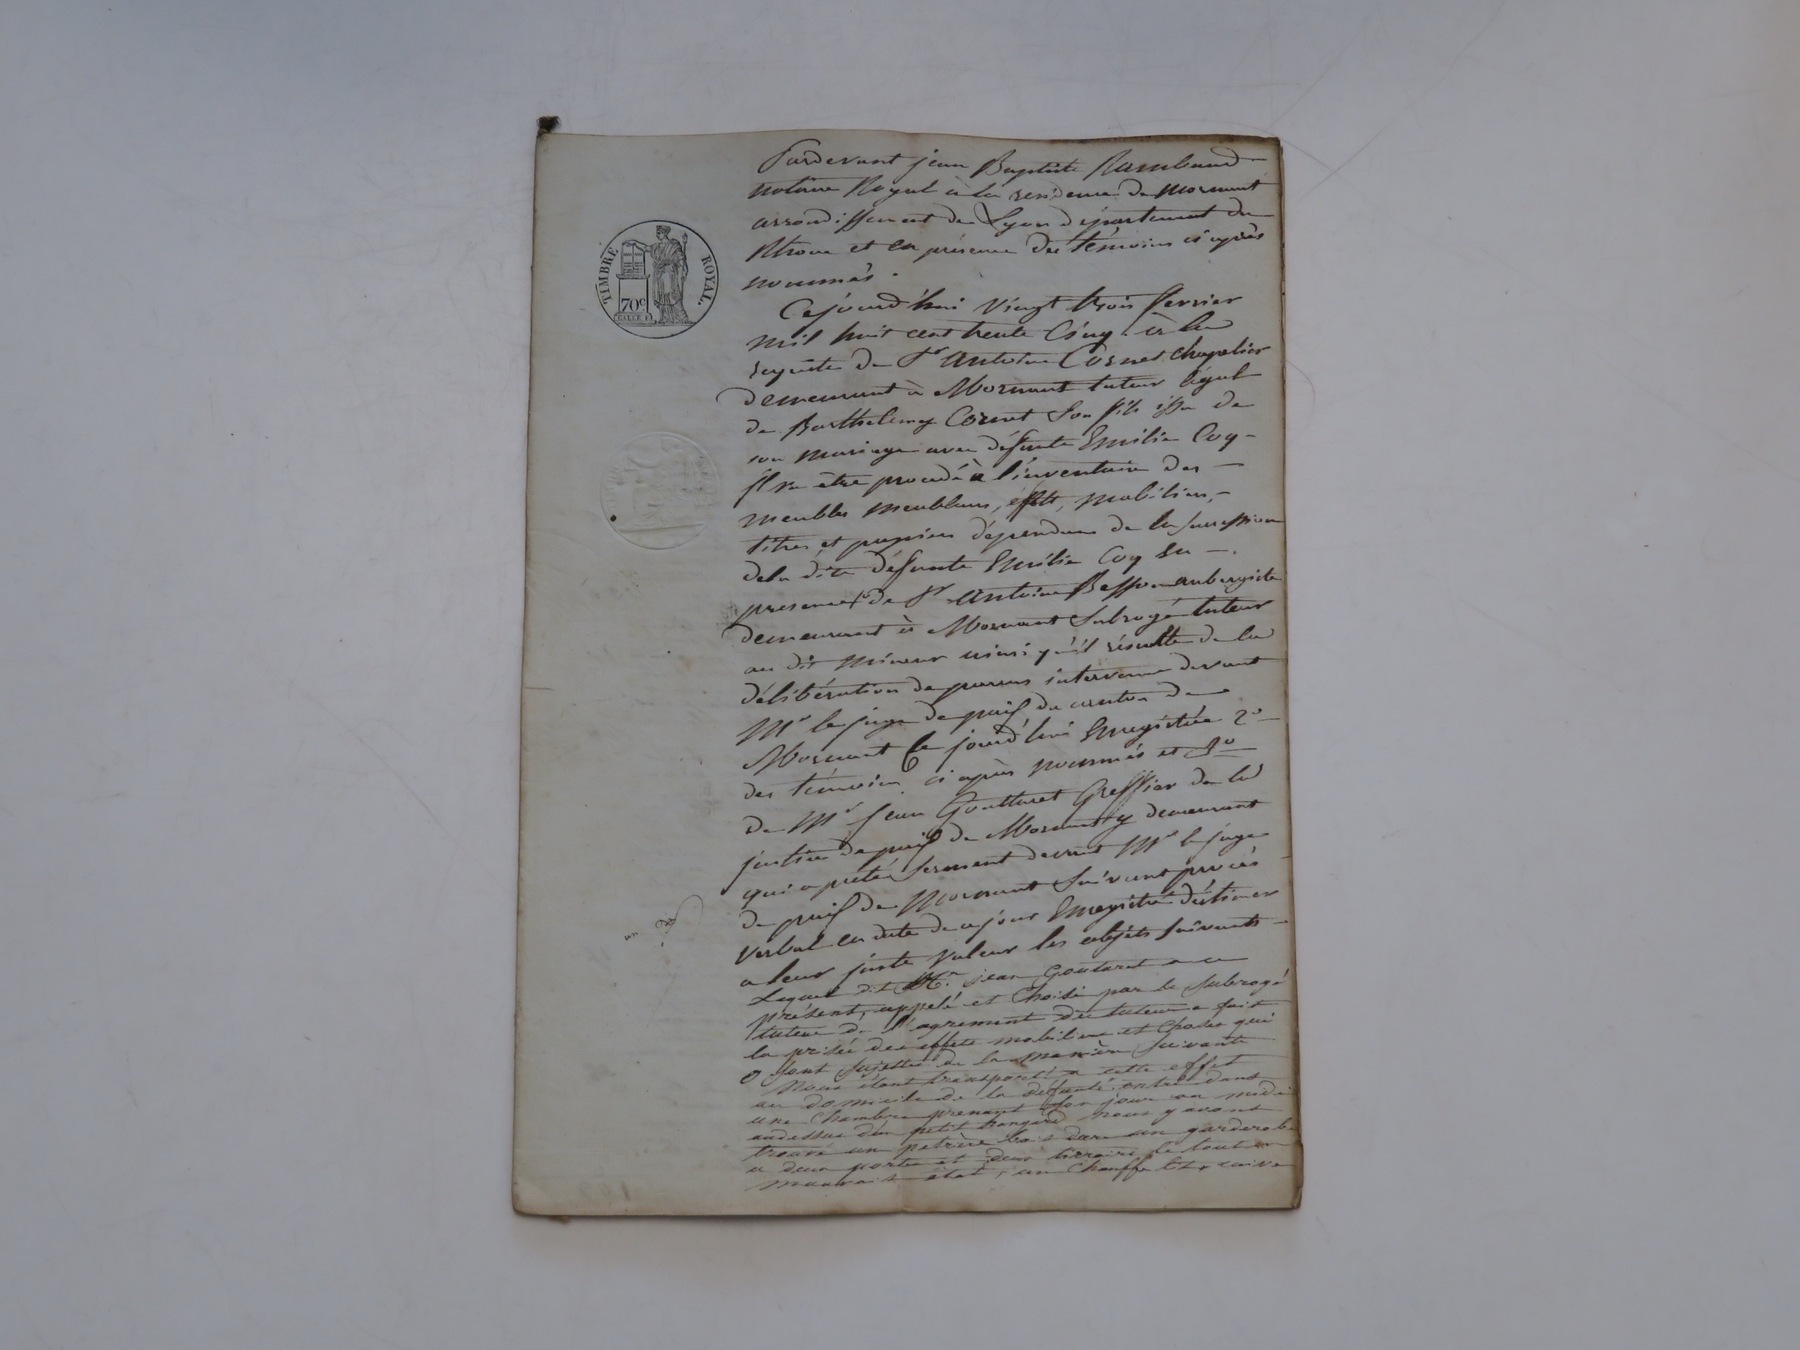 TIMBRE ROYAL.
70c
Pardevant jean Baptiste Rambaud
notaire Royal à la residence de Mornant
arrondissement de Lyon département du
Rhone et en présence des témoins ci après
nommés
Cejourd'hui vingt trois fevrier
mil huit cent trente Cinq à la
requête de Sr Antoine Cornet chapelier
demeurant à Mornant tuteur légal
de Barthelemy Cornet son fils issu de
son mariage avec défunte Emilie Coq
il va être procédé à l'inventaire des
meubles meublans, effets, mobiliers,
titres et papiers dépendans de la succession
dela dite défunte Emilie Coq en
presence 1o de Sr Antoine Besson aubergiste
demeurant à Mornant subrogé tuteur
au dit mineur ainsi qu'il résulte de la
délibération de parens intervenue devant
Mr le juge de paix du canton de
Mornant Ce jourd'hui Enregistrée 2o
des témoins ci après nommés et 3o
de Mr Jean Goutturet Greffier de la
justice de paix de Mornant y demeurant
qui a preté serment devant Mr le juge
de paix de Mornant suivant procès
verbal en date de ce jour Enregistré d'éstimer
a leur juste valeur les objets suivants
Lequel dit Mr. jean Goutaret a ce
présent, appelé et choisi par le subrogé
tuteur de l'agrement du tuteur a fait
la prisée des effets mobiliers et choses qui
y sont sujettes de la manière suivante
Nous étant transporté a cette effet
au domicile de la défunte, entré dans
une Chambre prenant son jour au midi
audessus d'un petit hangard nous y avons
trouvé un petrière bois dure un garderobe
a deux portes et deux tirroirs le tout en
mauvais état, un Chauffe lit cuivre